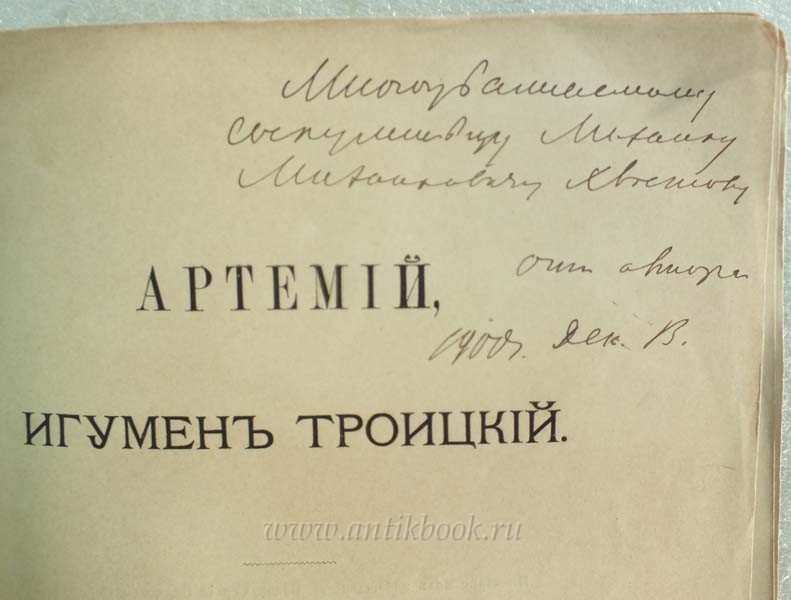 Многоуважаемому
сослуживцу Михаилу
Михайловичу Хвостову
АРТЕМІЙ,
отъ автора
1900 г. Дек. 13.
ИГУМЕНЪ ТРОИЦКІЙ.
www.antikbook.ru